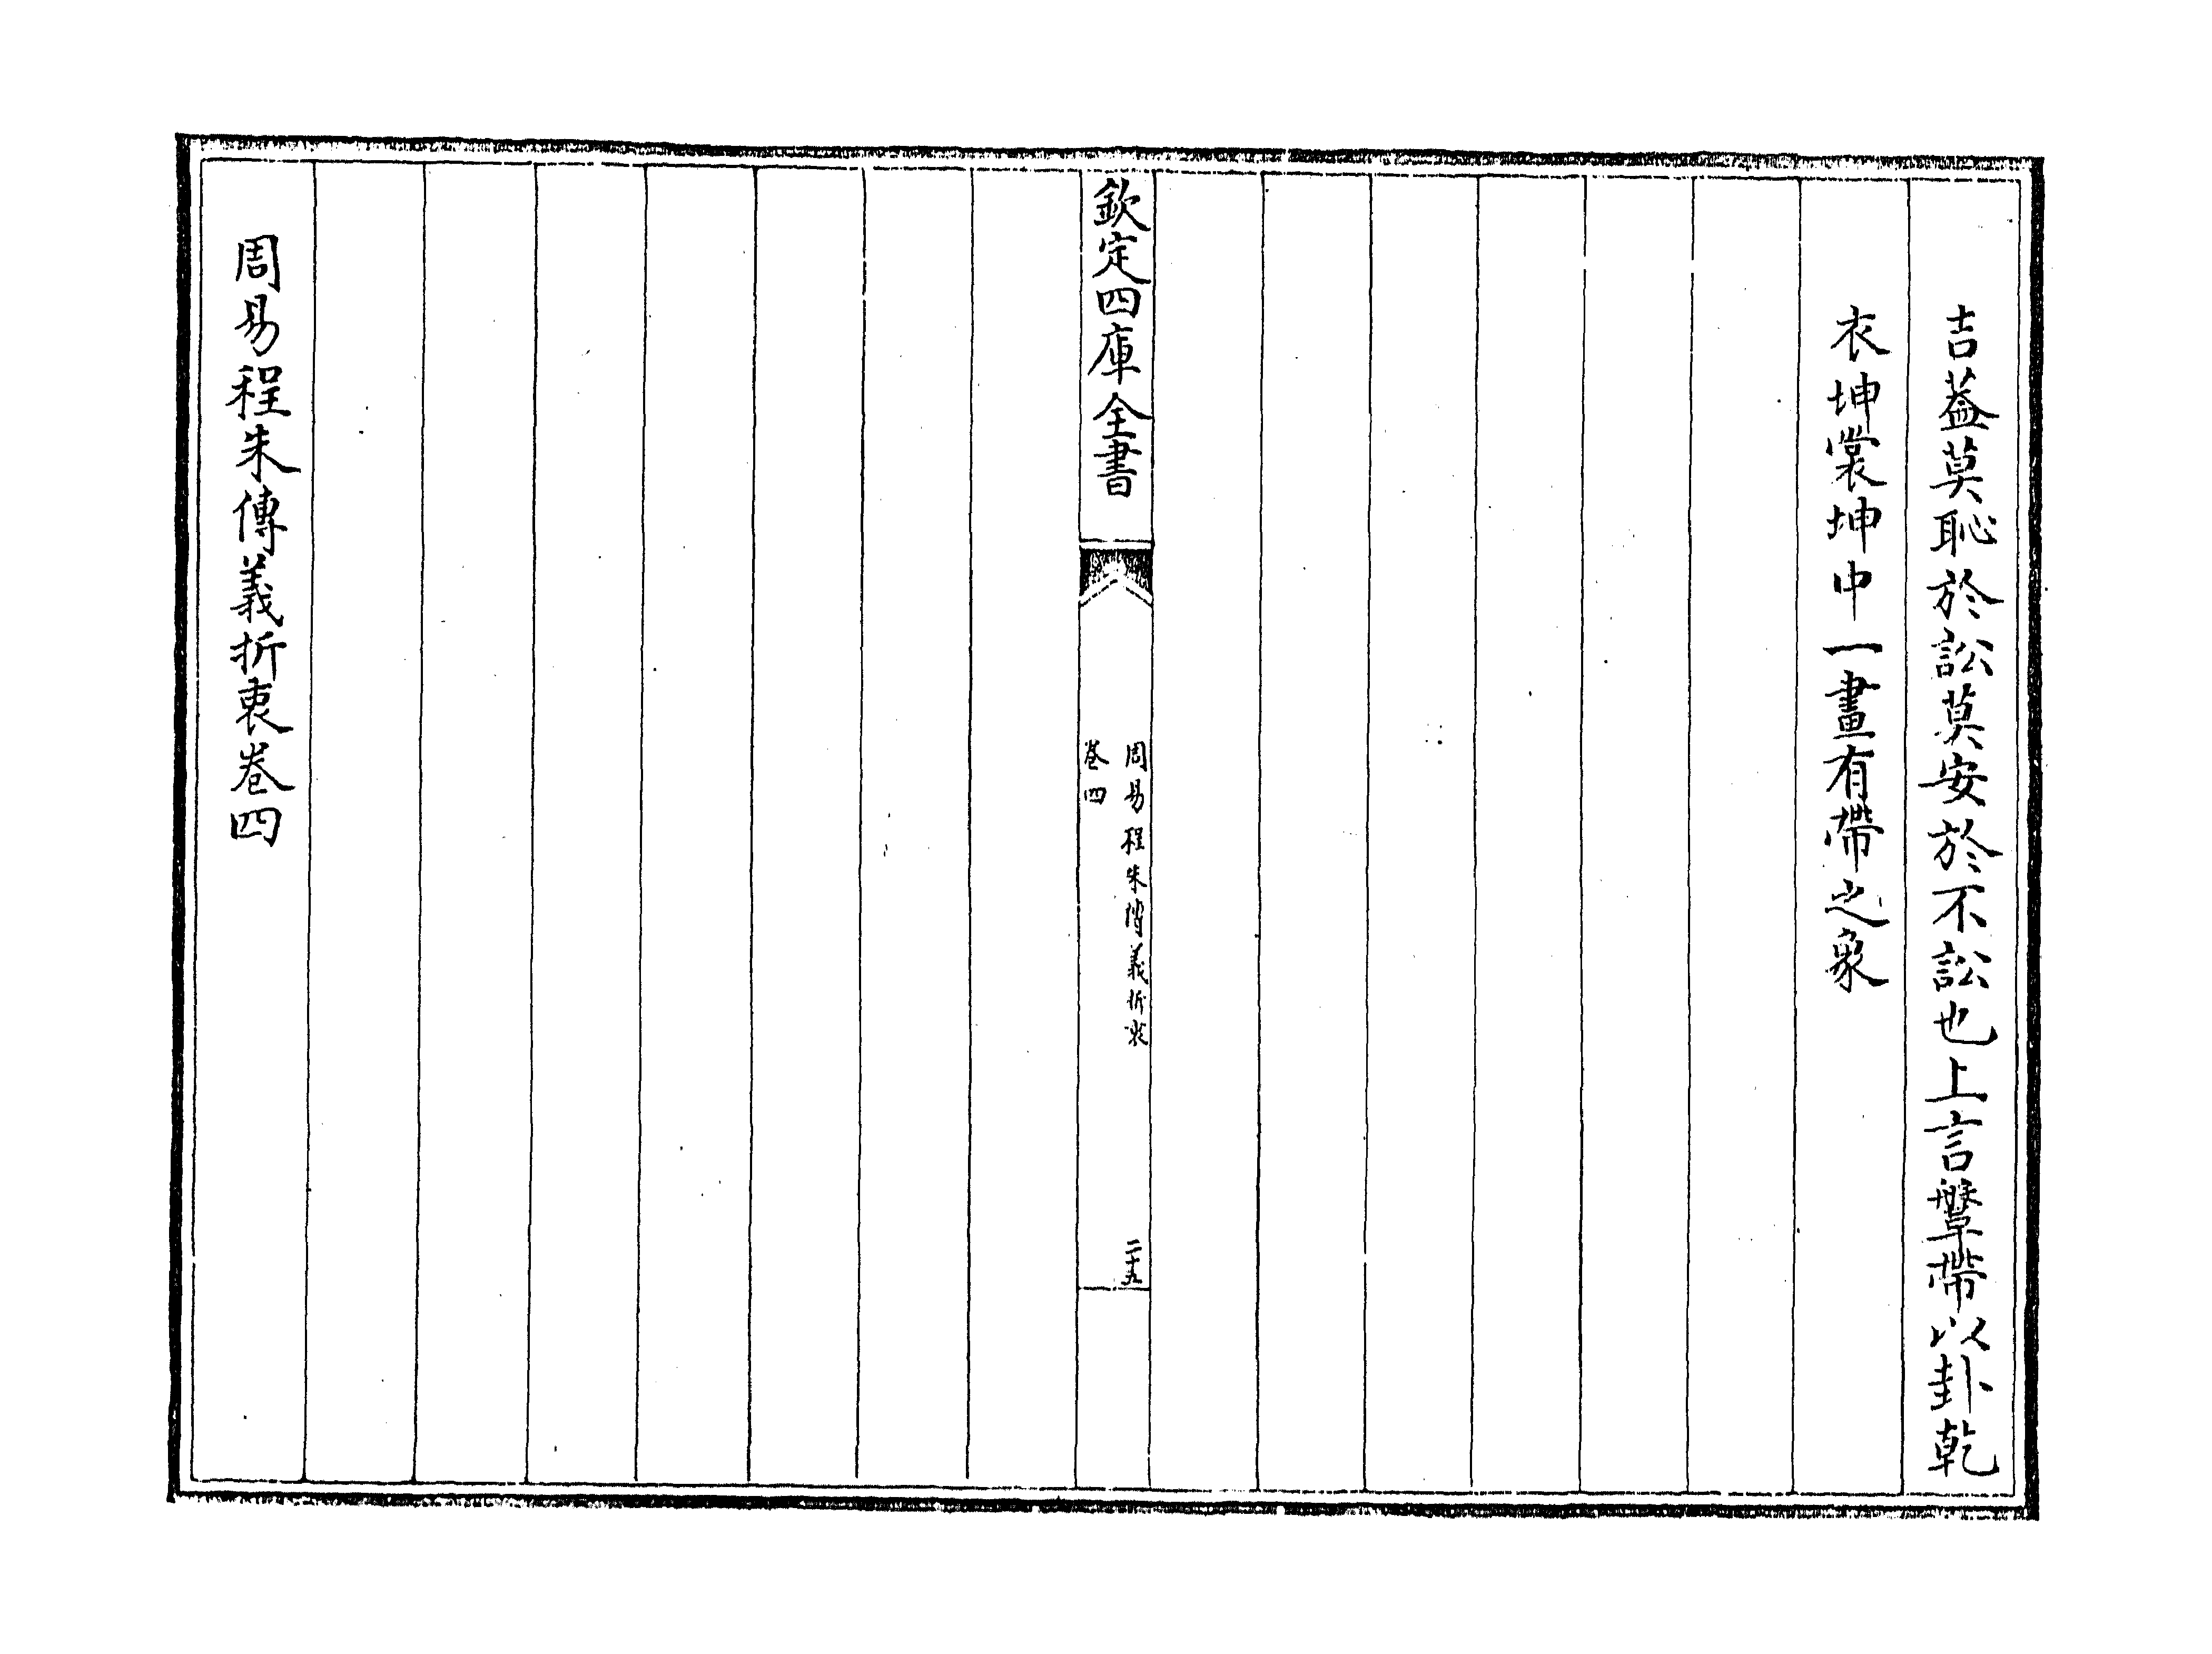 吉葢莫恥於訟莫安於不訟也上言鞶帶以卦乾
衣坤裳坤中一畫有帶之象
欽定四庫全書
周易程朱傳義折衷
卷四
二十五
周易程朱傳義折衷卷四